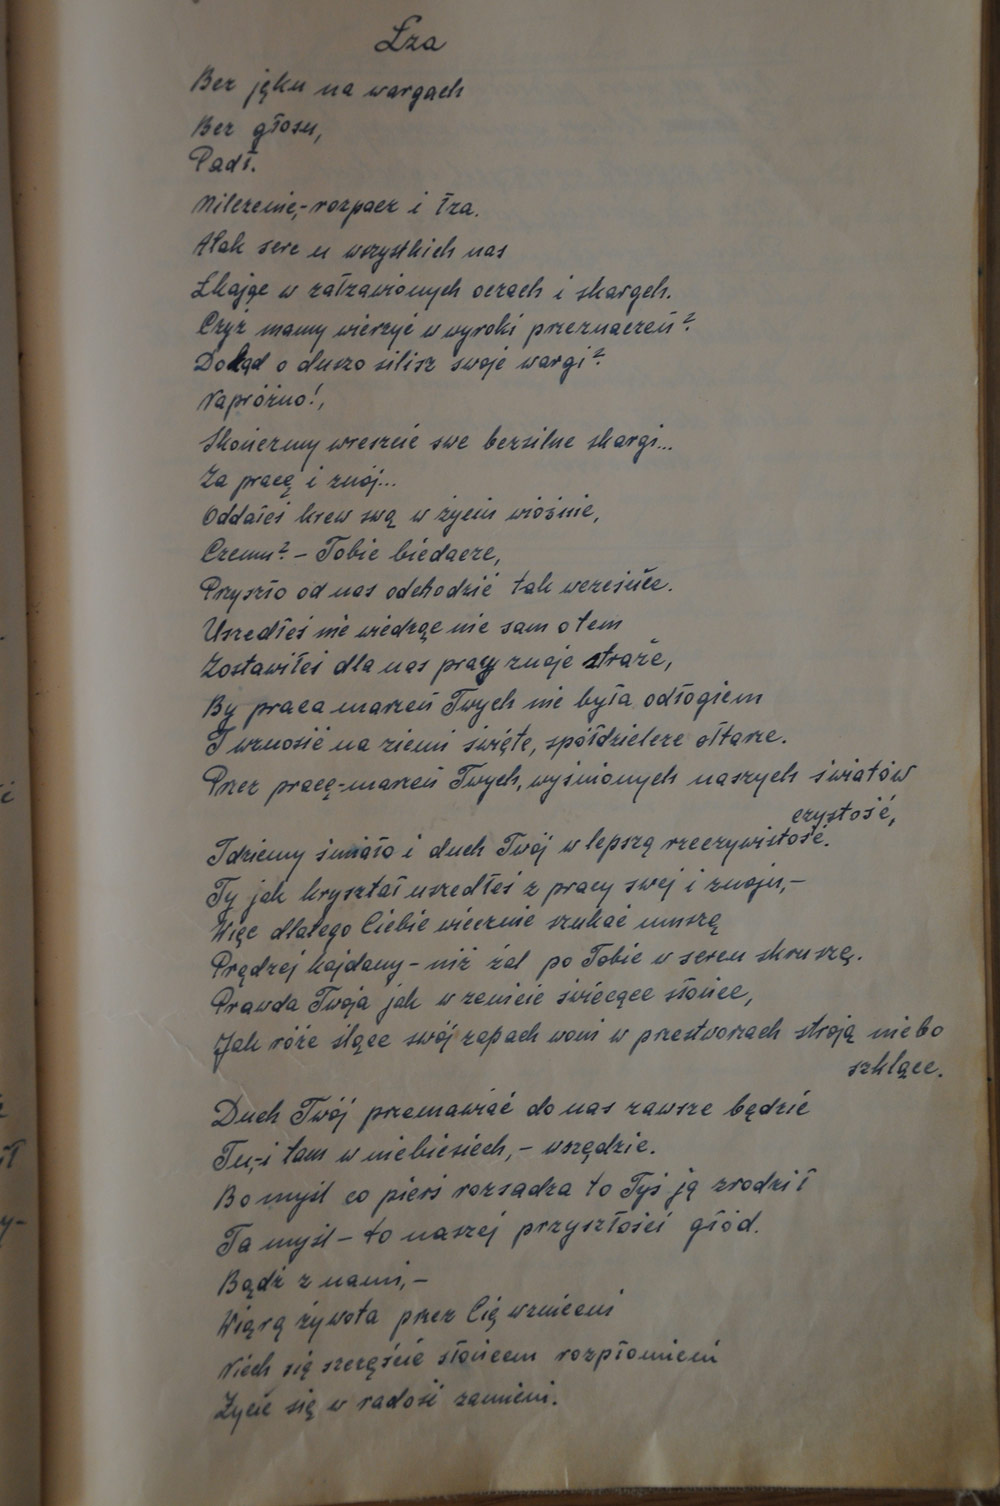 Łza
Bez jęku na wargach
Bez głosu,
Padł.
Milczenie,- rozpacz i łza.
Atak serc u wszystkich nas
Łkając w załzawionych oczach i skargch.
Czyż mamy wierzyć w wyroki przeznaczeń?
Dokąd o duszo silisz swoje wargi?
Napróżno!,
Skończmy wreszcie swe bezsilne skargi...
Za pracę i znój...
Oddałeś krew swą w życiu wiośnie,
Czemu? - Tobie biedacze,
Przyszło od nas odchodzić tak wcześnie.
Uszedłeś nie wiedząc nie sam o tem
Zostawiłeś dla nas pracy znoje straże,
By praca marzeń Twych nie była odłogiem
I wznosić na ziemi święte, spółdzielcze ołtarze.
Przez pracę-marzeń Twych, wyśnionych naszych światów
czystość,
Idziemy śmiało i duch Twój w lepszą rzeczywistość.
Ty jak kryształ uszedłeś z pracy swej i znoju,-
Więc dlatego Ciebie wiecznie szukać muszę
Prędzej kajdany - niż żal po Tobie w sercu skruszę.
Prawda Twoja jak w zenicie świecące słońce,
Jak róże ślące swój zapach woni w przestworzach stroją niebo
szklące.
Duch Twój przemawiać do nas zawsze będzie
Tu,-i tam w niebiesiech,- wszędzie.
Bo myśl co pierś rozsadza to Tyś ją zrodził
Ta myśl - to naszej przyszłości głód.
Bądź z nami,-
Wiarą żywota przez Cię wznieceni
Niech się szczęście słońcem rozpłomieni
Życie się w radość zamieni.